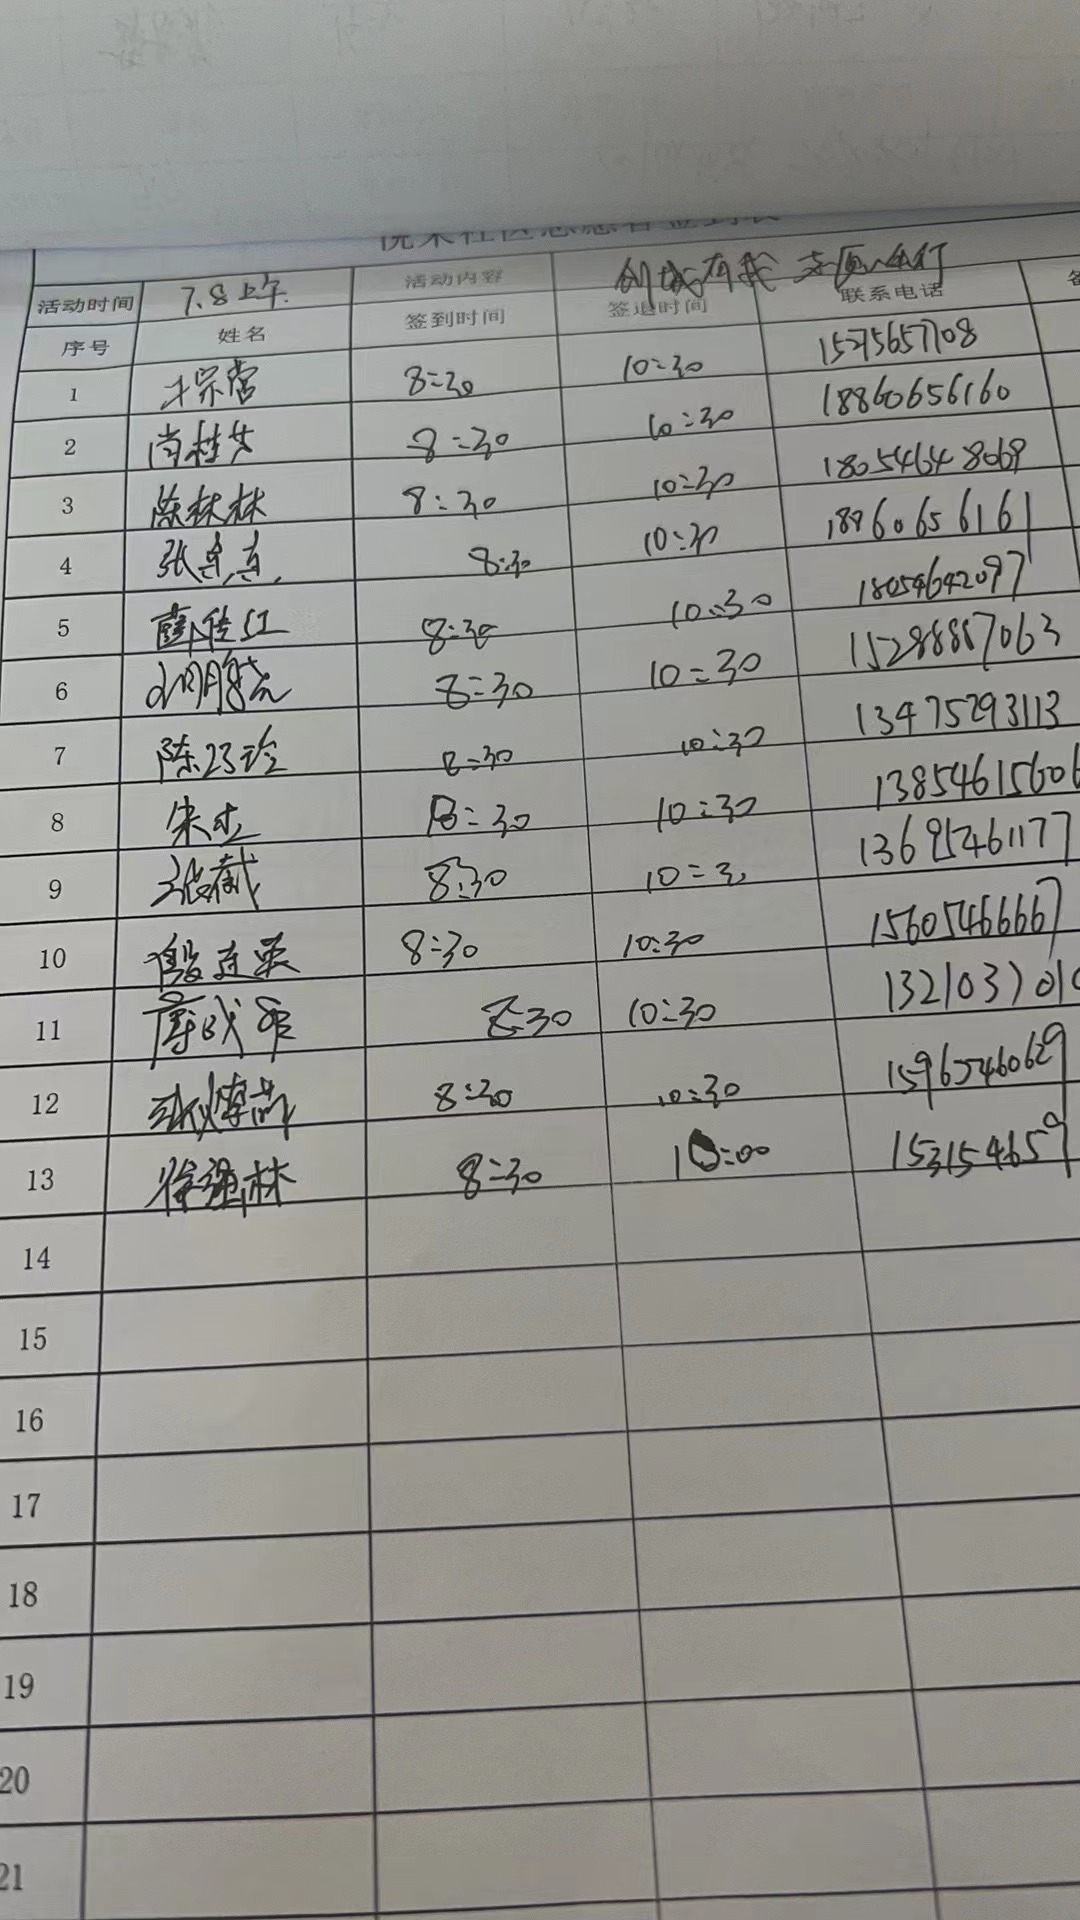 社区志愿者签到表
活动时间 7.8上午. 活动内容 创城有我 志愿同行
序号 姓名 签到时间 签退时间 联系电话
1 8:30 10:30 15275657708
2 肖桂英 8:30 10:30 18860656160
3 陈林林 8:30 10:30 18054648069
4 张真真 8:30 10:30 18860656161
5 薛佳红 8:30 10:30 18054642097
6 8:30 10:30 15288887063
7 8:30 10:30 13475293113
8 宋杰 8:30 10:30 13854615606
9 8:30 10:30 13695461177
10 8:30 10:30 15605466667
11 8:30 10:30 132103701
12 8:30 10:30 15965460629
13 徐 林 8:30 10:00 153154659
14
15
16
17
18
19
20
21